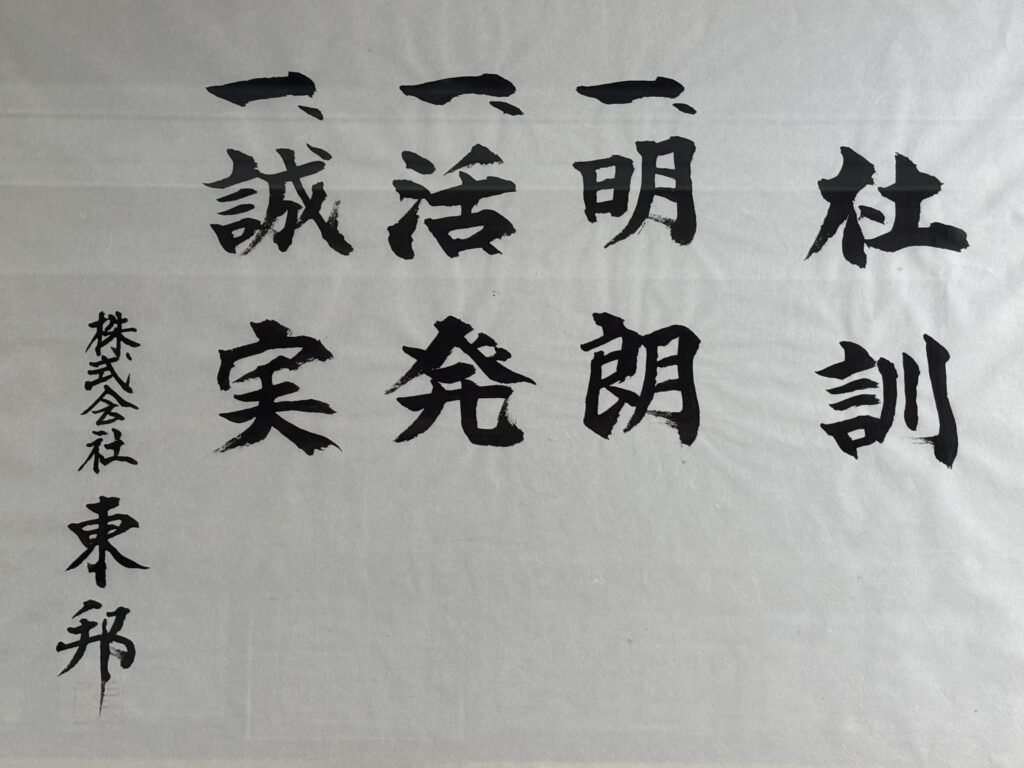 社訓
一、明朗
一、活発
一、誠実
株式会社 東邦